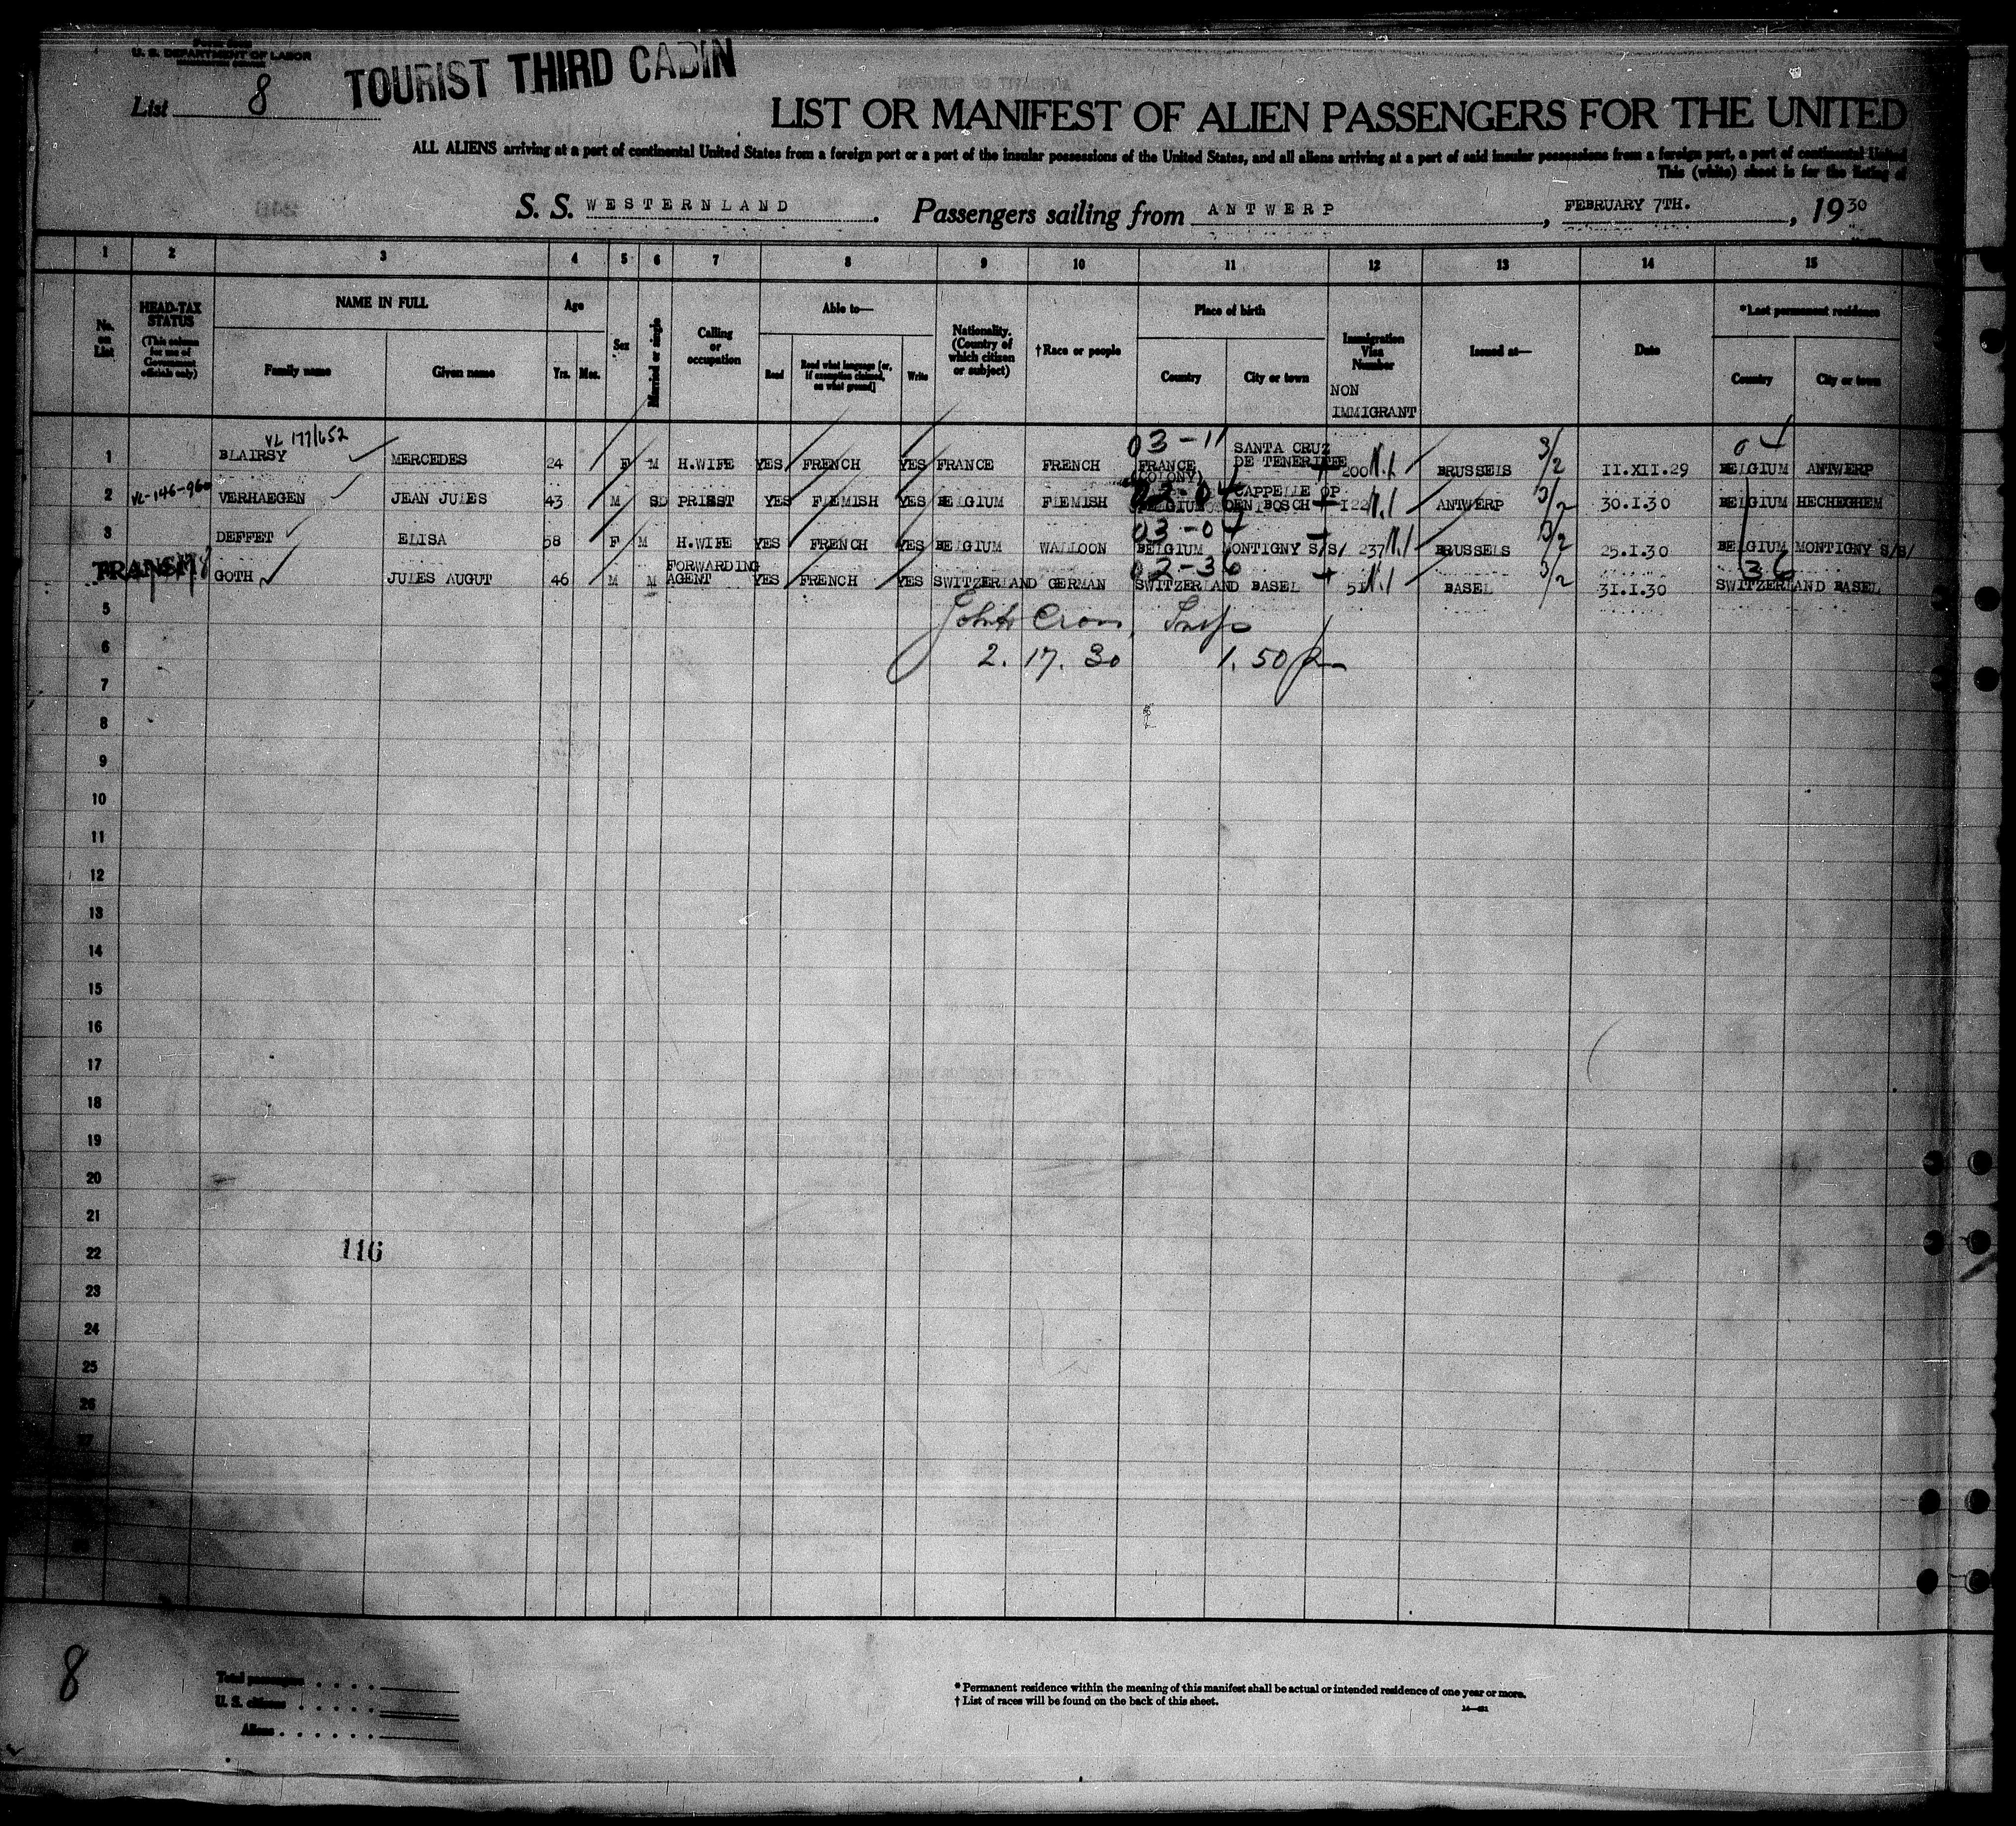 U. S. DEPARTMENT OF LABOR
List 8
TOURIST THIRD CABIN
LIST OR MANIFEST OF ALIEN PASSENGERS FOR THE UNITED
ALL ALIENS arriving at a port of continental United States from a foreign port or a port of the insular possessions of the United States, and all aliens arriving at a port of said insular possessions from a foreign port, a port of continental United
This (white) sheet is for the listing of
S. S. WESTERNLAND. Passengers sailing from ANTWERP, FEBRUARY 7TH., 1930
1 2 3 4 5 6 7 8 9 10 11 12 13 14 15
No. on List
HEAD-TAX STATUS (This column for use of Government officials only)
NAME IN FULL
Family name
Given name
Age
Yrs. Mos.
Sex
Married or single
Calling or occupation
Able to—
Read
Read what language [or, if exemption claimed, on what ground]
Write
Nationality. (Country of which citizen or subject)
†Race or people
Place of birth
Country
City or town
Immigration Visa Number
NON IMMIGRANT
Issued at—
Date
*Last permanent residence
Country
City or town
VL 177/652
03-11
1 BLAIRSY MERCEDES 24 F M H.WIFE YES FRENCH YES FRANCE FRENCH FRANCE (COLONY) SANTA CRUZ DE TENERIFFE 200 BRUSSELS 3/2 II.XII.29 BELGIUM ANTWERP
2 VL-146-960 VERHAEGEN JEAN JULES 43 M SD PRIEST YES FLEMISH YES BELGIUM FLEMISH BELGIUM CAPPELLE OP DEN BOSCH I22 ANTWERP 3/2 30.I.30 BELGIUM HECHEGHEM
03-04
3 DEFFET ELISA 58 F M H.WIFE YES FRENCH YES BELGIUM WALLOON BELGIUM MONTIGNY S/S/ 237 BRUSSELS 3/2 25.I.30 BELGIUM MONTIGNY S/S/
02-36 36
TRANSIT GOTH JULES AUGUT 46 M M FORWARDING AGENT YES FRENCH YES SWITZERLAND GERMAN SWITZERLAND BASEL 51 BASEL 3/2 31.I.30 SWITZERLAND BASEL
5
6 2.17.30 1.50 pm
7
8
9
10
11
12
13
14
15
16
17
18
19
20
21
22 116
23
24
25
26
8
Total passengers
U. S. citizens
Aliens
* Permanent residence within the meaning of this manifest shall be actual or intended residence of one year or more.
† List of races will be found on the back of this sheet.